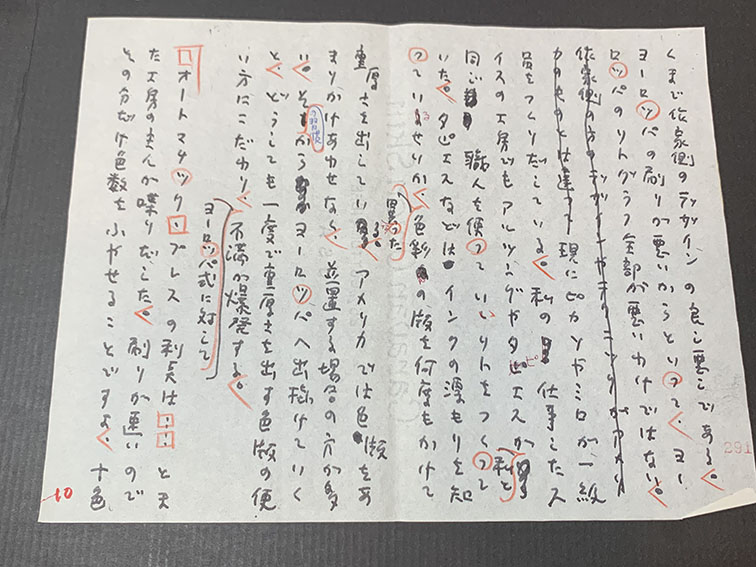 くまで作家側のデザインの良し悪しである。
ヨーロッパの刷りが悪いからといって、ヨー
ロッパのリトグラフ全部が悪いわけではない。
作家側の方のデザインやテクニックがアメリ
カのものとは違って 現にピカソやミロが一級
品をつくりだしている。私の仕事したス
イスの工房でもアルツングやタピエスが私と
同じ職人を使っていいリトをつくって
いた。タピエスなどはインクの濃もりを知
っているせいか、異った色彩の版を何度もかけて
重厚さを出している。アメリカでは色版をあ
まりかけあわせなく、並置する場合の方が多
い。その習慣からヨーロッパへ出掛けていく
と、どうしても一度で重厚さを出す色版の使
い方にこだわり、ヨーロッパ式に対して不満が爆発する。
オートマチック・プレスの利点は……と
た工房の主人が喋りだした。刷りが速いので
その分だけ色数をふやせることですよ、十色
10
291